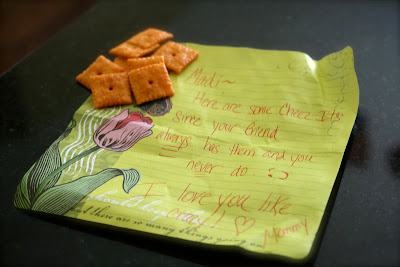 Madi~
Here are some Cheez Its
since your friend
always has them and you
never do :)
I love you like
crazy!! ♡
Mommy
and there are so many things